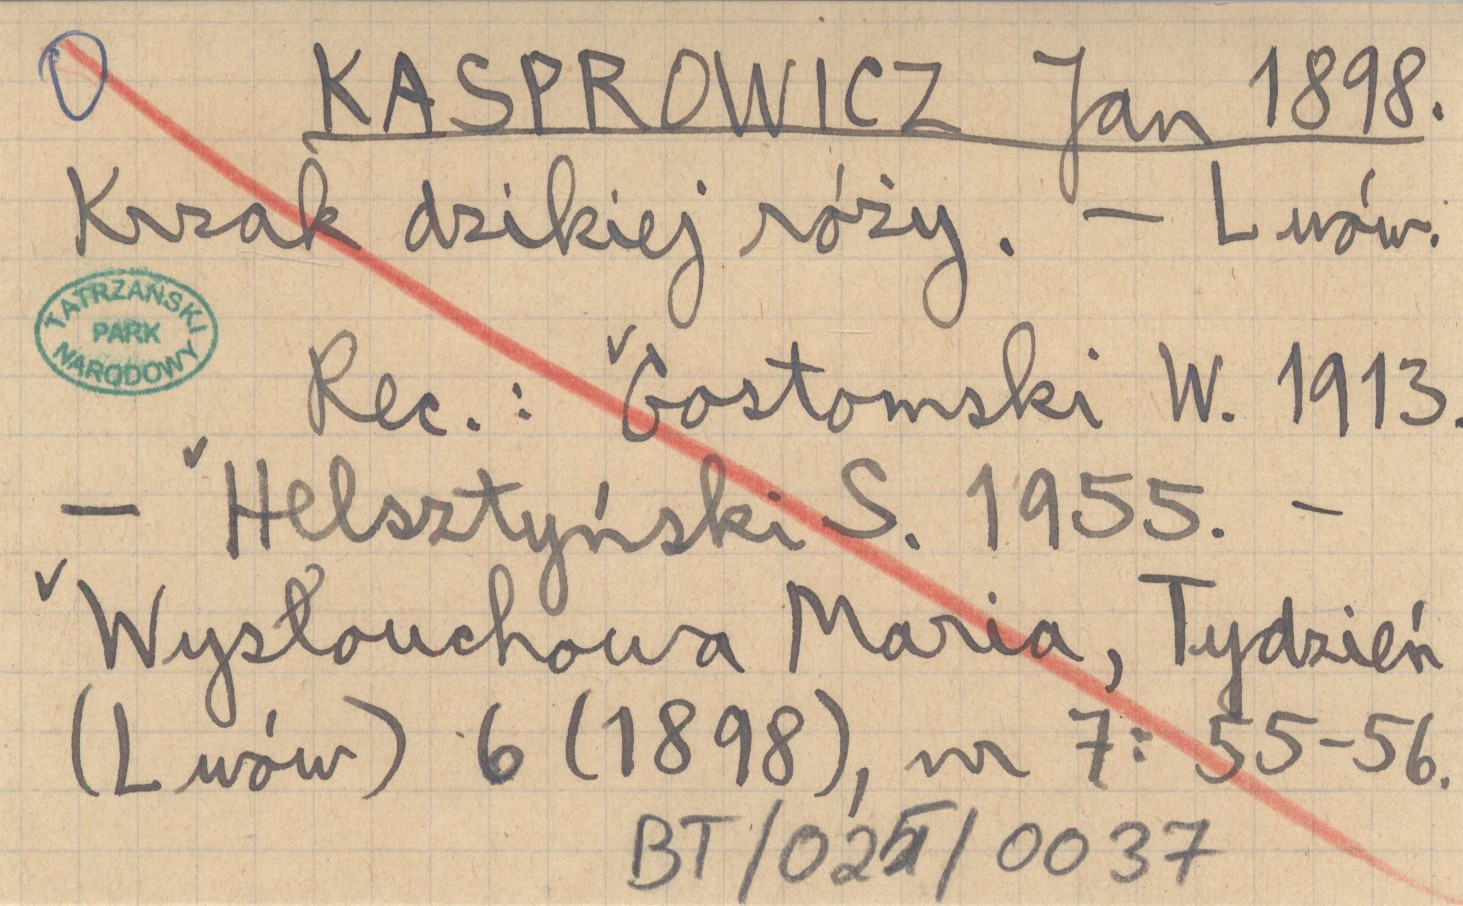 KASPROWICZ Jan 1898.
Krzak dzikiej róży. — Lwów.
TATRZAŃSKI
PARK
NARODOWY
Rec.: Gostomski W. 1913.
— Helsztyński S. 1955. —
Wysłouchowa Maria, Tydzień
(Lwów) 6 (1898), nr 7: 55-56.
BT/ /0037